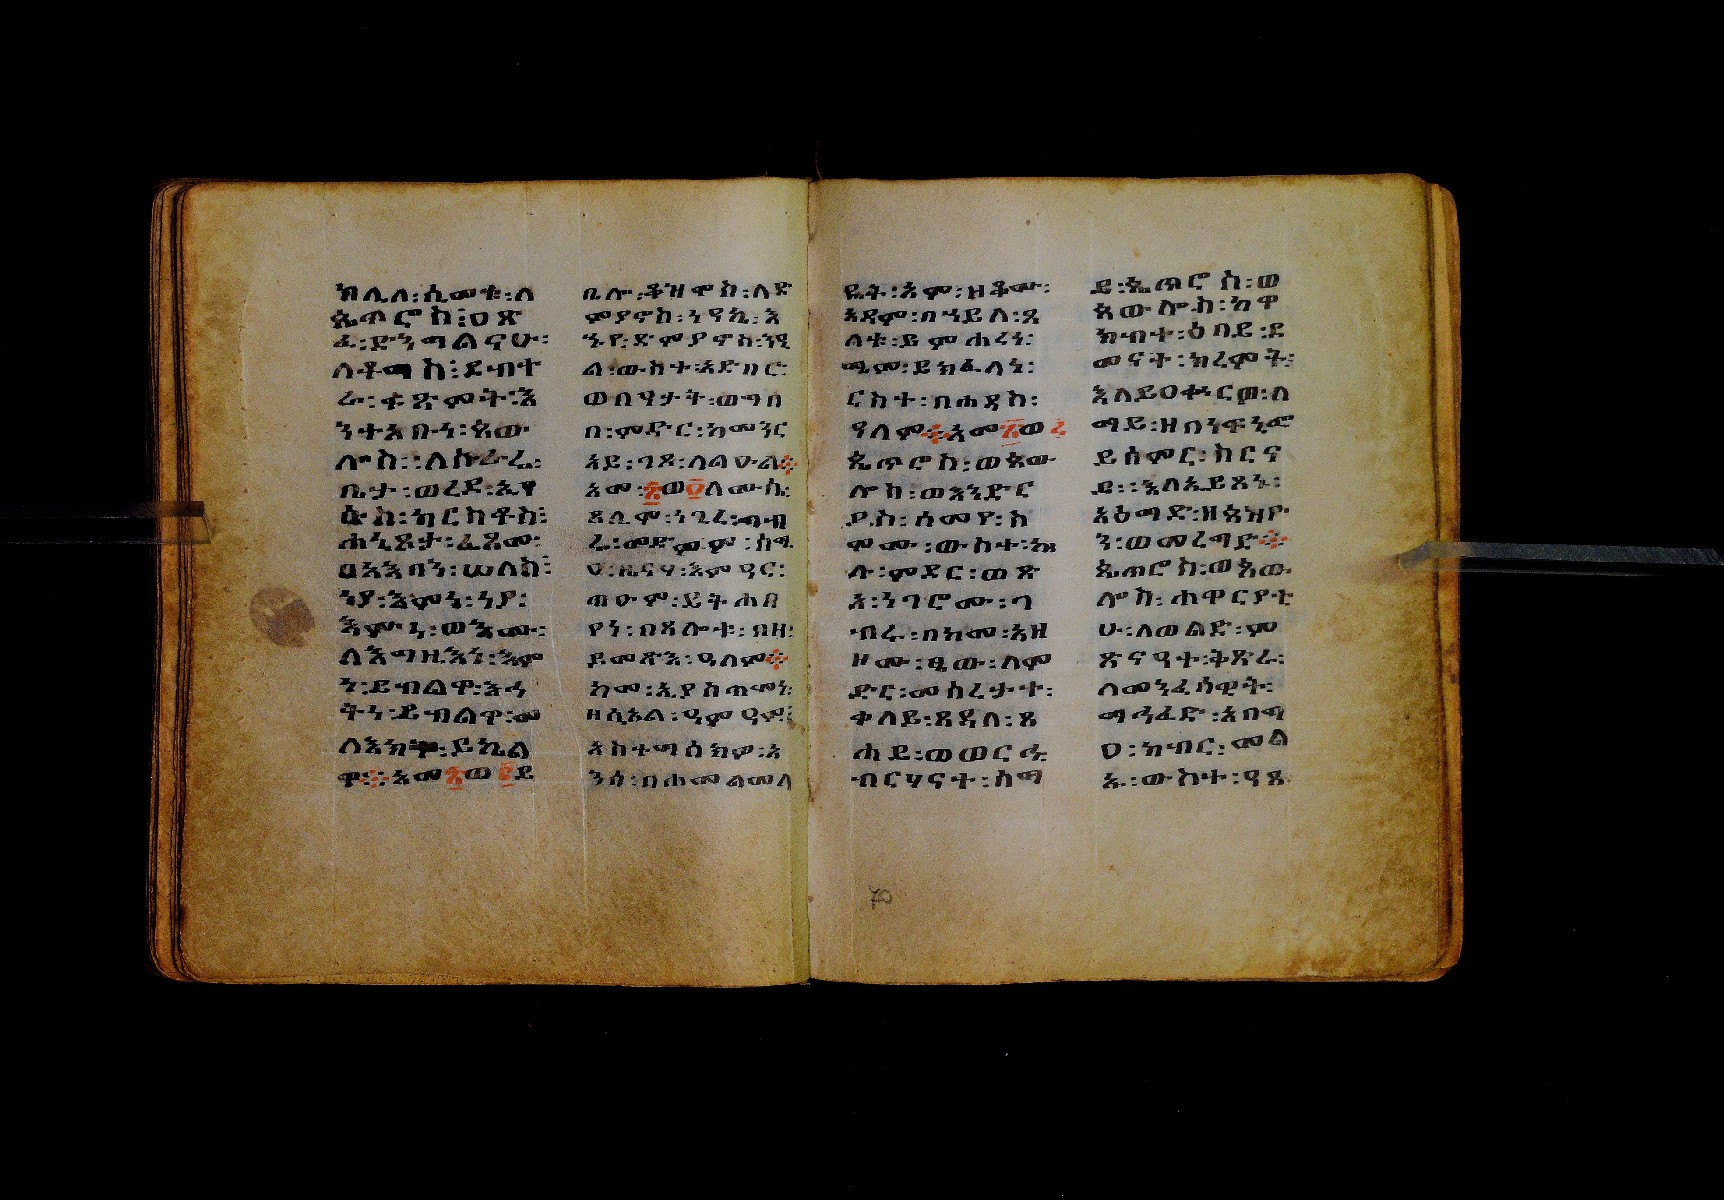 ክሊለ፡ሲመቱ፡ለ
ጴጥሮስ፡ዐጽ
ፈ፡ድንግልናሁ፡
ለቶማስ፡ደብተ
ራ፡ቱጽምት፡እ
ንተአቡነ፡ጳው
ሎስ፡፡ለኩራሬ፡
ቤታ፡ወረደ፡ኢየ
ሱስ፡ክርስቶስ፡
ሐኒጾታ፡ፈጸመ፡
በእእባን፡ሠለስ፡
ነያ፡እምነ፡ነያ፡
እምነ፡ወእሙ፡
ለእግዚእነ፡እም
ን፡ይብልዋ፡እኅ
ትነ፡ይብልዋ፡መ
ለእክት፡ይኬል
ዋ፡፡አመ፳ወ፭ደ
ቢሎ፡ቆዝሞስ፡ለድ
ምያኖስ፡ነዓኒ፡እ
ንየ፡ድምያኖስ፡ንዒ
ል፡ውስተ፡አድባር፡
ወበዓታት፡ወግበ
በ፡ምድር፡ከመንር
አይ፡ገጸ፡ለልዑል፡፡
አመ፡፳ወ፭ለሙሴ፡
ጸሊም፡ነገረ፡ጣብ
ሬ፡መድምም፡ስማ
ዑ፡ዜናሃ፡እምዓር፡
ጠዑም፡ይትሐበ
የነ፡በጸሎቱ፡በዘ፡
ይመጽእ፡ዓለም፡፡
ከመ፡ኢያስጠመነ፡
ዘሲኦል፡ዓምዓም፡
አስተማሰክዎ፡አ
ንሰ፡በሐመልመለ
ዴት፡እም፡ዘቆሙ፡
አዳም፡በኀይለ፡ጸ
ሎቱ፡ይምሐረነ፡
ዓም፡ይክፈለነ፡
ርስተ፡በሐዳስ፡
ዓለም፡፡አመ፳ወ፯
ጴጥሮስ፡ወጳው
ሎስ፡ወእንድር
ያስ፡ሰመዮ፡ስ
ሞሙ፡ውስተ፡ኵ
ሉ፡ምድር፡ወጽ
አ፡ነገሮሙ፡ባ
ብሬ፡በከመ፡አዘ
ዞሙ፡ፂው፡ለም
ድር፡መሰረታተ፡
ቀለይ፡ጸዳለ፡ጸ
ሐይ፡ወወርኁ
ብርሃናት፡ሰማ
ይ፡ጴጥሮስ፡ወ
ጳውሎስ፡ከዋ
ክብተ፡ዕበይ፡ደ
መናት፡ክረምት፡
እለይዐቍርወ፡ለ
ማይ፡ዘበንፍኖሞ
ይሰምር፡ከርና
ይ፡፡እለኢይጸኑ፡
አዕማድ፡ዘጳዝዮ
ን፡ወመረግድ፡፡
ጴጥሮስ፡ወጳው
ሎስ፡ሐዋርያቲ
ሁ፡ለወልድ፡ም
ጽናዓተ፡ቅጽራ፡
ለመንፈሳዊት፡
ማኅፈድ፡አበማ
ዕ፡ክብር፡መል
ኡ፡ውስተ፡ዓጸ
70